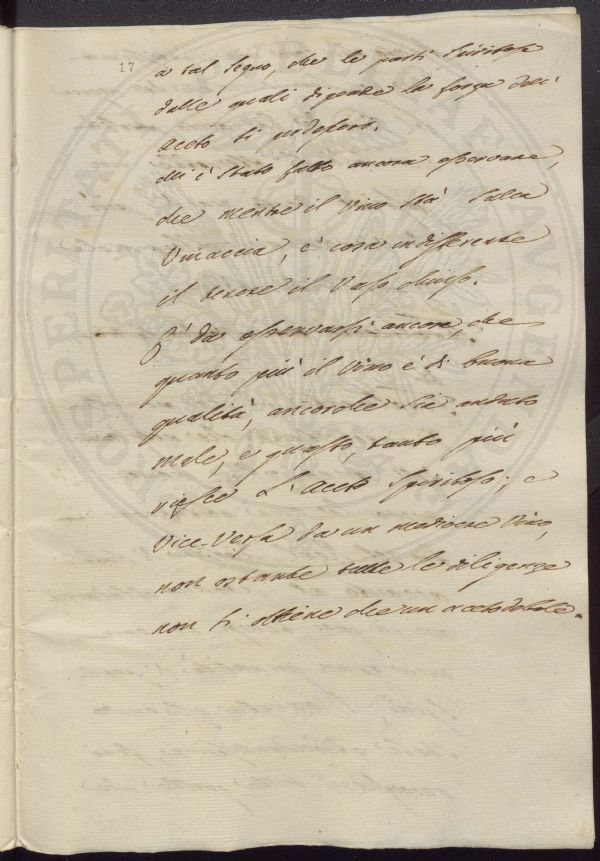 17
a tal segno, che le parti Spiritose
dalle quali dipende la forza dell'
aceto si
Mi è stato fatto ancora osservare,
che mentre il Vino stà Sulla
Vinaccia, è cosa indifferente
il tenere il Vaso chiuso.
È da osservarsi ancora, che
quanto più il Vino è di buona
qualità, ancorche Sia andato
male, e guasto, tanto più
riesce l'Aceto Spiritoso; e
Vice-Versa da un mediocre Vino,
non ostante tutte le diligenze
non si ottiene che un aceto debole.
PROSPERITATI PUBLICAE AUGENDAE